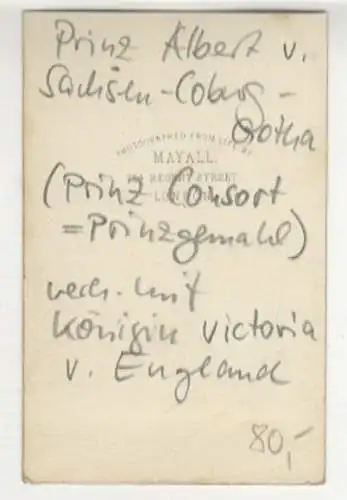 Prinz Albert v.
Sachsen-Coburg-
Gotha
PHOTOGRAPHED FROM LIFE BY
MAYALL
REGENT STREET
(Prinz Consort
LONDON
=Prinzgemahl)
verh. mit
Königin Victoria
v. England
80,-